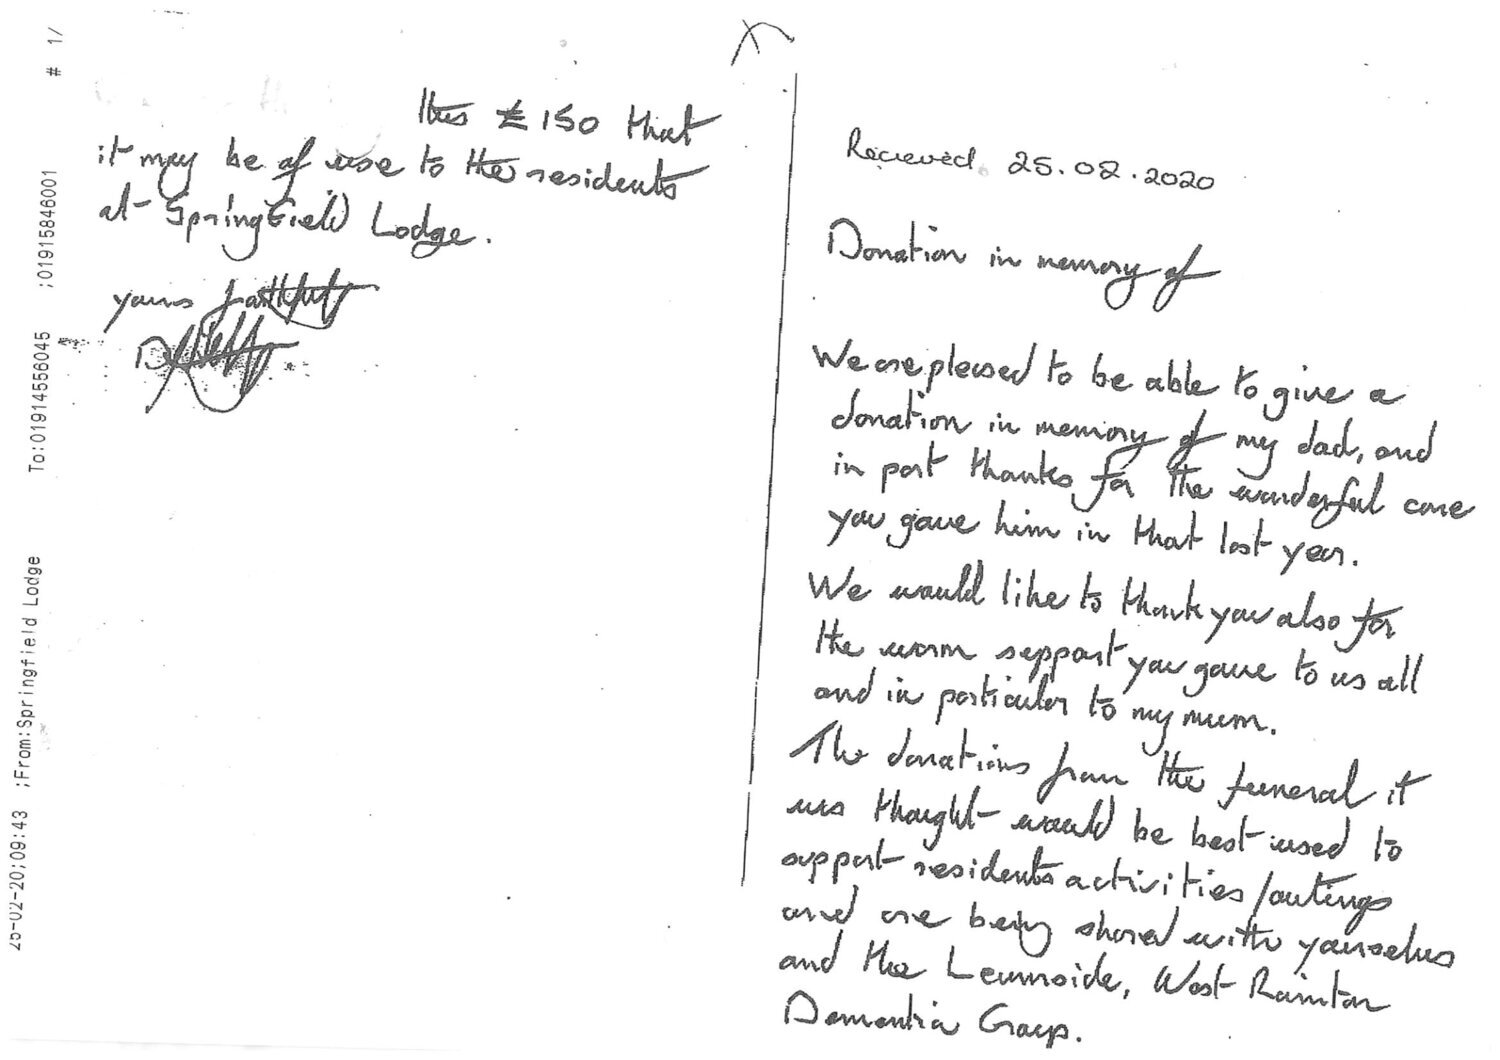 Recieved. 25.02.2020
Donation in memory of
We are pleased to be able to give a
donation in memory of my dad, and
in part thanks for the wonderful care
you gave him in that last year.
We would like to thank you also for
the warm support you gave to us all
and in particular to my mum.
The donations from the funeral it
was thought would be best used to
support residents activities/outings
and are being shared with yourselves
and the Leamside, West Rainton
Dementia Group.
this £150 that
it may be of use to the residents
at Springfield Lodge.
yours faithfully
25-02-20;09:43 ;From:Springfield Lodge To:01914556045 ;01915846001 # 1/